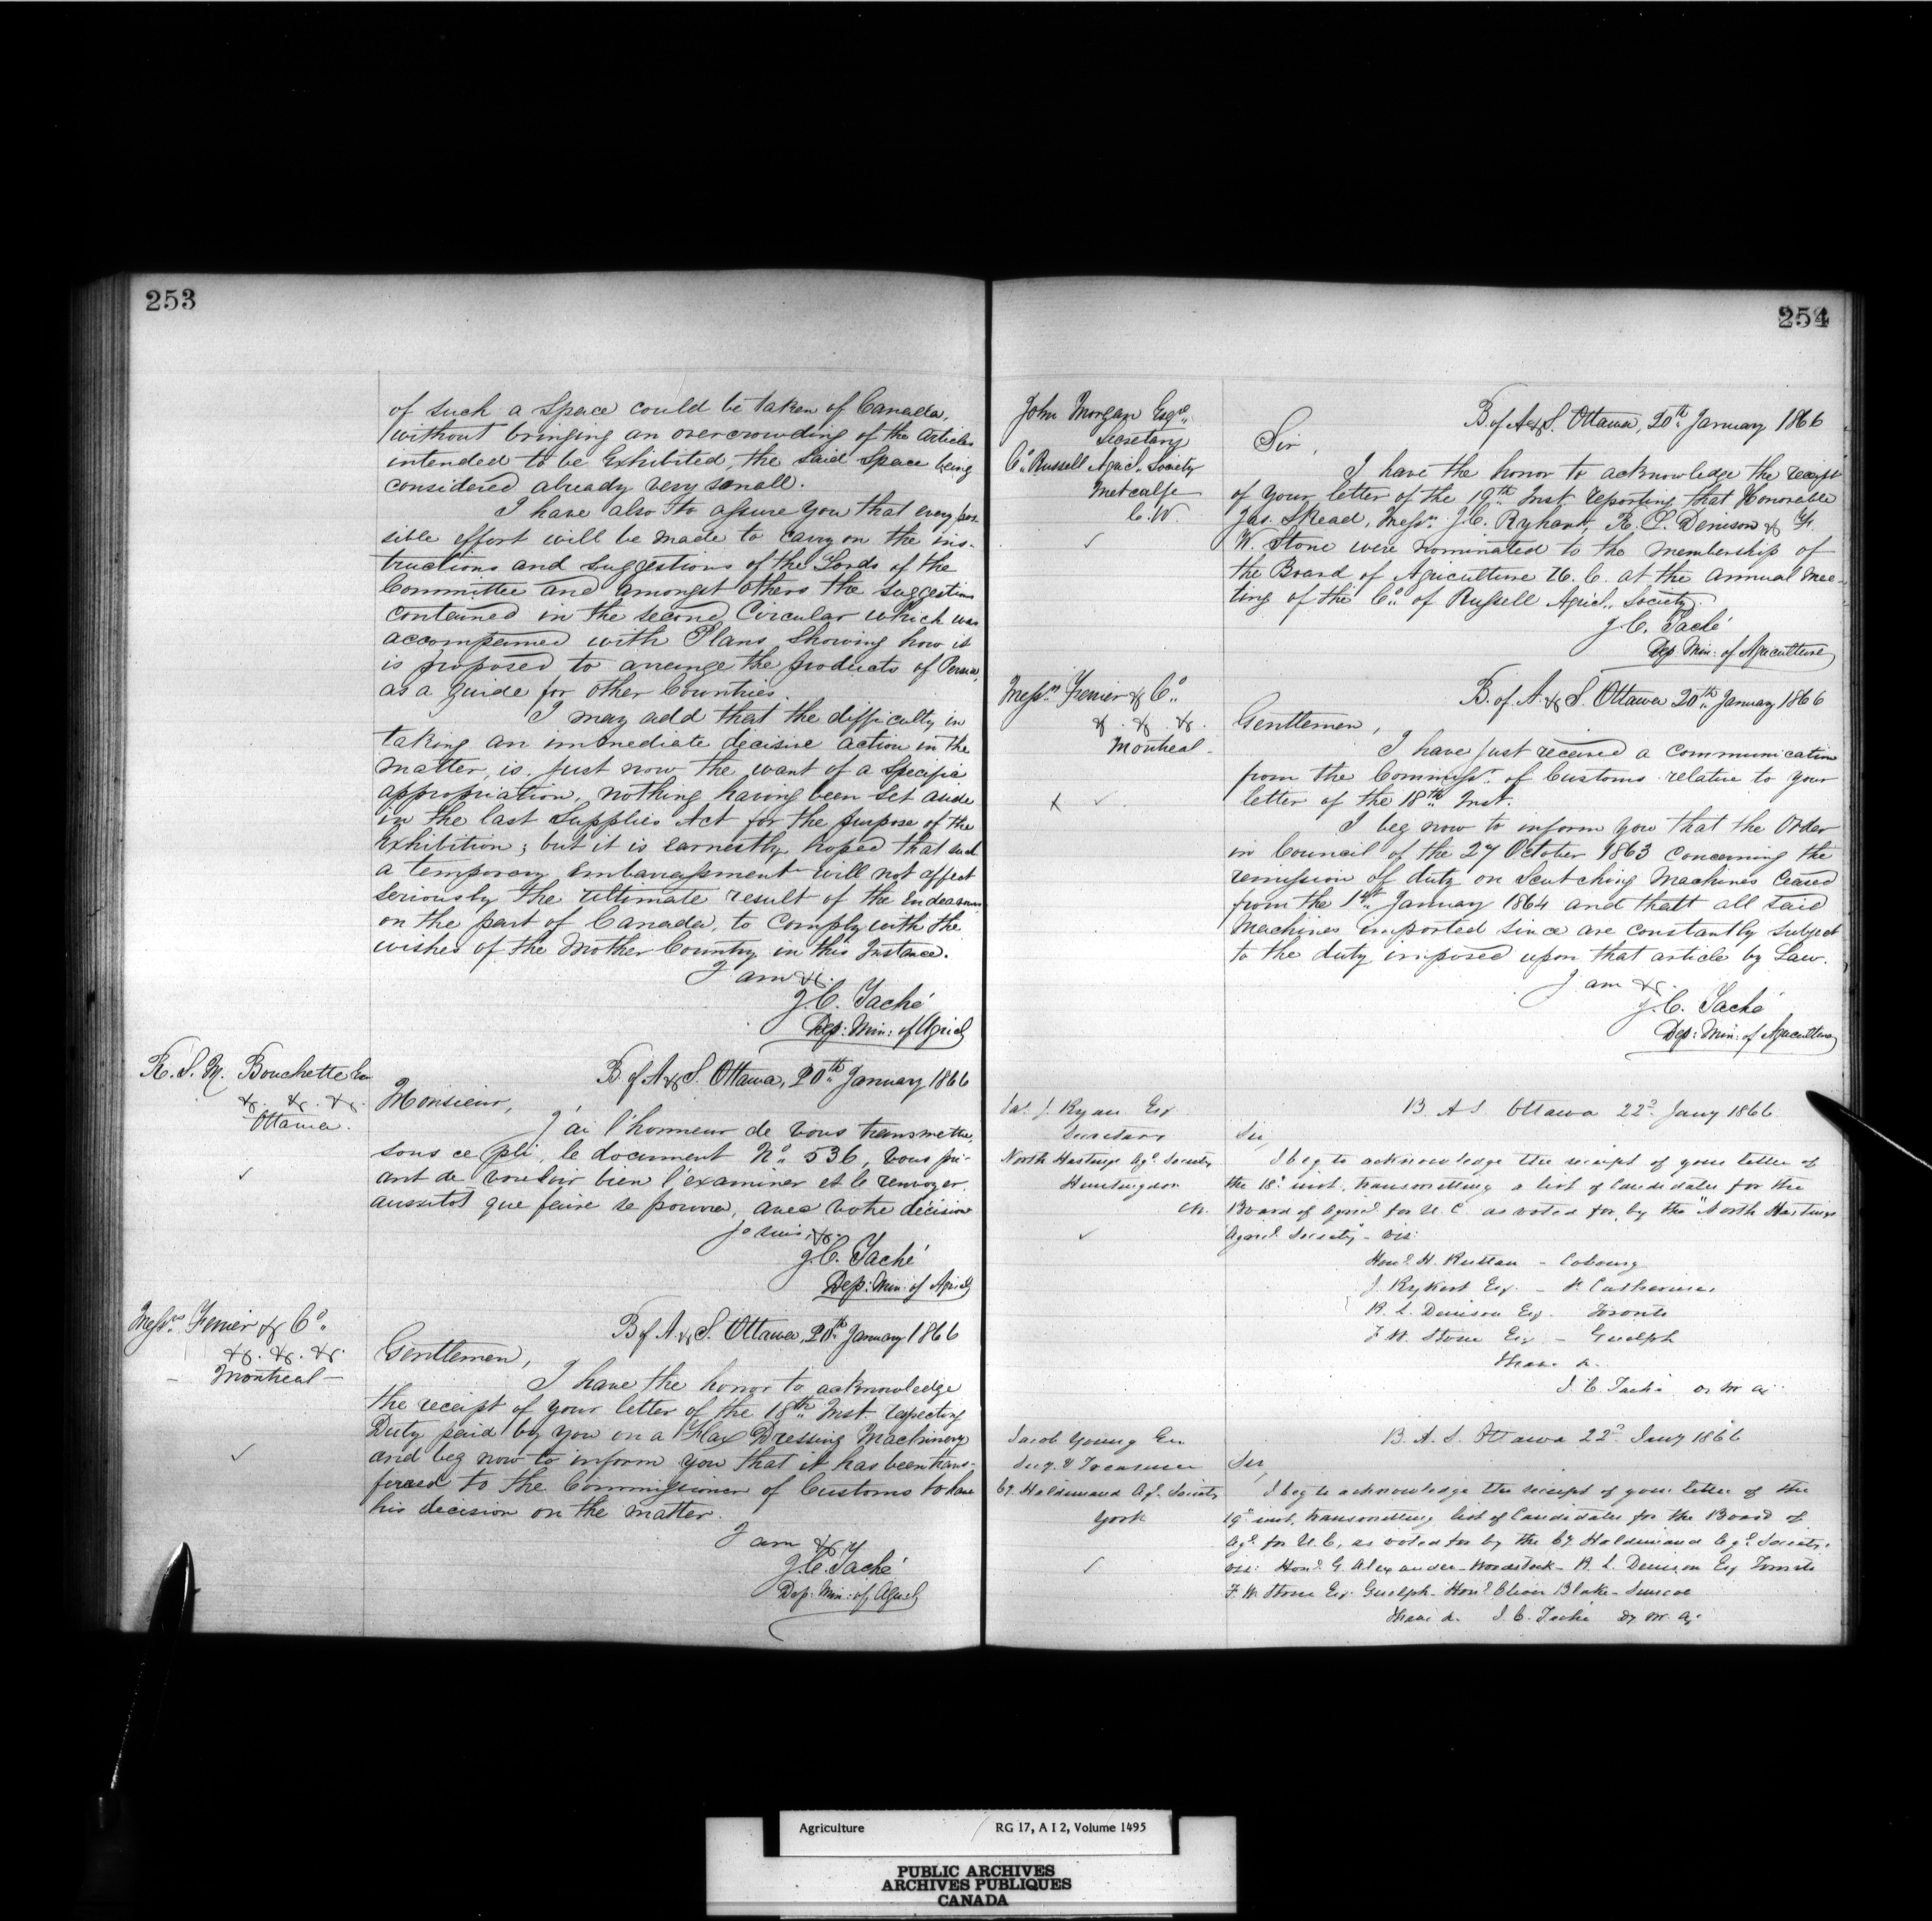 253
of such a space could be taken of Canada,
without bringing an overcrowding of the articles
intended to be Exhibited, the said space being
considered already very small.
I have also to assure you that every pos-
sible effort will be made to carry on the ins-
tructions and suggestions of the Lords of the
Committee and amongst others the suggestions
contained in the second Circular which was
accompanied with Plans, showing how it
is proposed to arrange the products of
as a guide for other Countries.
I may add that the difficulty in
taking an immediate decisive action in the
matter, is, just now the want of a specific
appropriation, nothing having been set aside
in the last Supplies Act for the purpose of the
Exhibition; but it is earnestly hoped that such
a temporary embarrassment will not affect
seriously the ultimate result of the Endeavours
on the part of Canada, to comply with the
wishes of the Mother Country in this Instance.
I am &c.
J. C. Taché
Dep: Min: of Agricl
R. S. M. Bouchette Esq
&c. &c. &c.
Ottawa.
B of A & S. Ottawa, 20th January 1866
Monsieur,
J'ai l'honneur de vous transmettre,
sous ce pli, le document No. 536, vous pri-
ant de vouloir bien l'examiner et le renvoyer
aussitôt que faire se pourra, avec votre décision
Je suis, &c.
J. C. Taché
Dep: Min: of Agricl
Messrs. Ferrier & Co.
&c. &c. &c.
Montreal
B of A. & S. Ottawa, 20th January 1866
Gentlemen,
I have the honor to acknowledge
the receipt of your letter of the 18th Inst. respecting
Duty paid by you on a Flax Dressing Machinery
and beg now to inform you that it has been trans-
fered to the Commissioner of Customs to have
his decision on the matter.
I am &c
J. C. Taché
Dep: Min: of Agricl
254
John Morgan Esqre.
Secretary
Co. Russell Agricl. Society
Metcalfe
C.W.
B of A & S. Ottawa, 20th January 1866
Sir,
I have the honor to acknowledge the receipt
of your letter of the 19th Inst. reporting that Honorable
Jas. Skead, Messrs. J. C. R. L. Denison & F.
W. Stone were nominated to the membership of
the Board of Agriculture U. C. at the annual mee-
ting of the Co. of Russell Agricl. Society.
J. C. Taché
Dep. Min: of Agriculture
Messrs. Ferrier & Co.
&. &. &.
Montreal
B. of. A. & S. Ottawa 20th January 1866
Gentlemen,
I have just received a communication
from the Commissr. of Customs relative to your
letter of the 18th Inst.
I beg now to inform you that the Order
in Council of the 27 October 1863 concerning the
remission of duty on Scutching Machines ceased
from the 1st January 1864 and thatt all said
Machines imported since are constantly subject
to the duty imposed upon that article by Law.
I am &c.
J. C. Taché
Dep: Min: of Agriculture
Jas. J. Ryan Esq
Secretary
North Hastings Agl. Society
Huntingdon
B. A S. Ottawa 22d. Jany 1866
Sir,
I beg to acknowledge the receipt of your letter of
the 18th inst. transmitting a list of Candidates for the
Board of Agricl. for U. C. as voted for by the "North Hastings
Agricl. Society" viz:
Honl. H. Ruttan - Cobourg
J. Rykert Esq. - St Catherines
R. L. Denison Esq. Toronto
F. W. Stone Esq - Guelph
I have &.
J. C. Taché D. M. Ag.
Jacob Young Esq
Secy. & Treasurer
Cy. Haldimand Ag. Society
York
B. A. S. Ottawa 22d. Jany 1866
Sir,
I beg to acknowledge the receipt of your letter of the
19th inst. transmitting list of Candidates for the Board of
Agl. for U. C, as voted for by the Cy. Haldimand Agl. Society.
viz: Honl. G. Alexander - Woodstock - R. L. Denison Esq Toronto
F. W. Stone Esq. Guelph - Honl. Blake - Simcoe
I have &. J. C. Taché Dy. M. Ag.
Agriculture
RG 17, A I 2, Volume 1495
PUBLIC ARCHIVES
ARCHIVES PUBLIQUES
CANADA